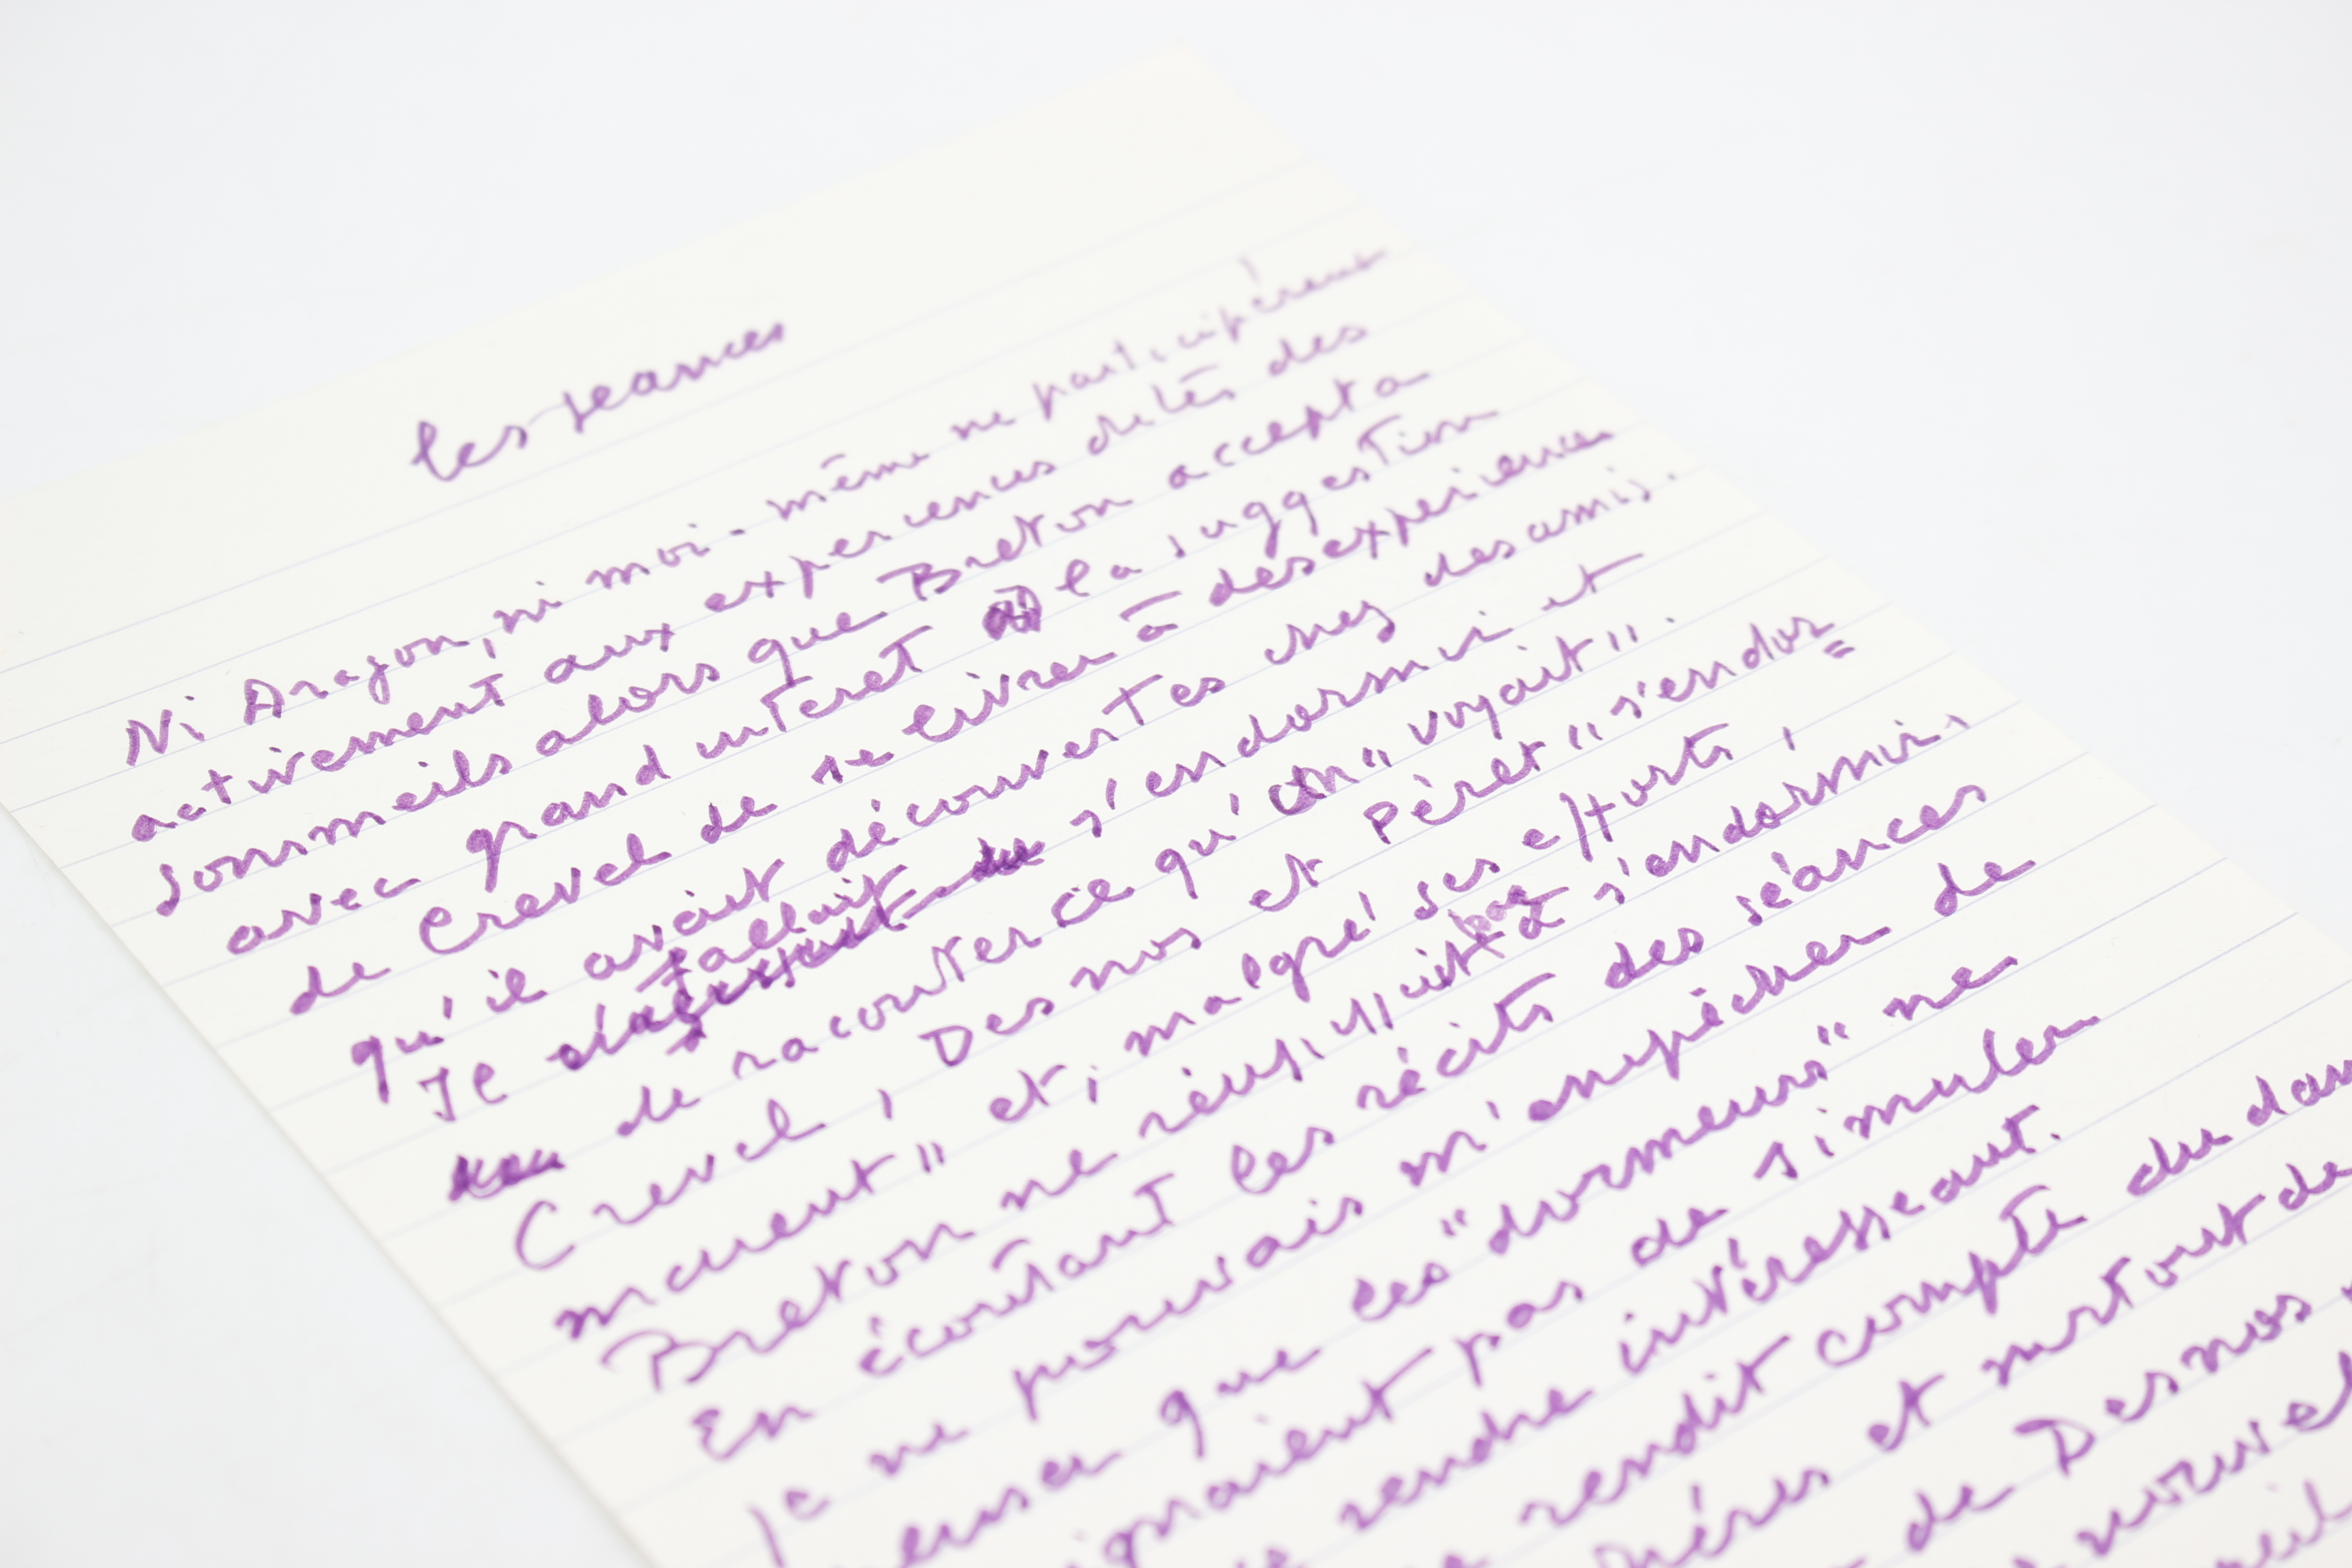 les séances
Ni Aragon, ni moi-même ne participèrent
activement aux experiences dites des
sommeils alors que Breton accepta
avec grand intérêt la suggestion
de Crevel de se livrer à des expériences
qu'il avait découvertes chez des amis.
Il fallait s'endormir et
de raconter ce qu'on "voyait".
Crevel, Desnos et Péret "s'endor=
maient" et, malgré ses efforts,
Breton ne réussissait pas à s'endormir.
En écoutant les récits des séances
je ne pouvais m'empêcher de
penser que ces "dormeurs" ne
craignaient pas de simuler
se rendre intéressant.
rendit compte du dan
Péret et surtout de
de Desnos